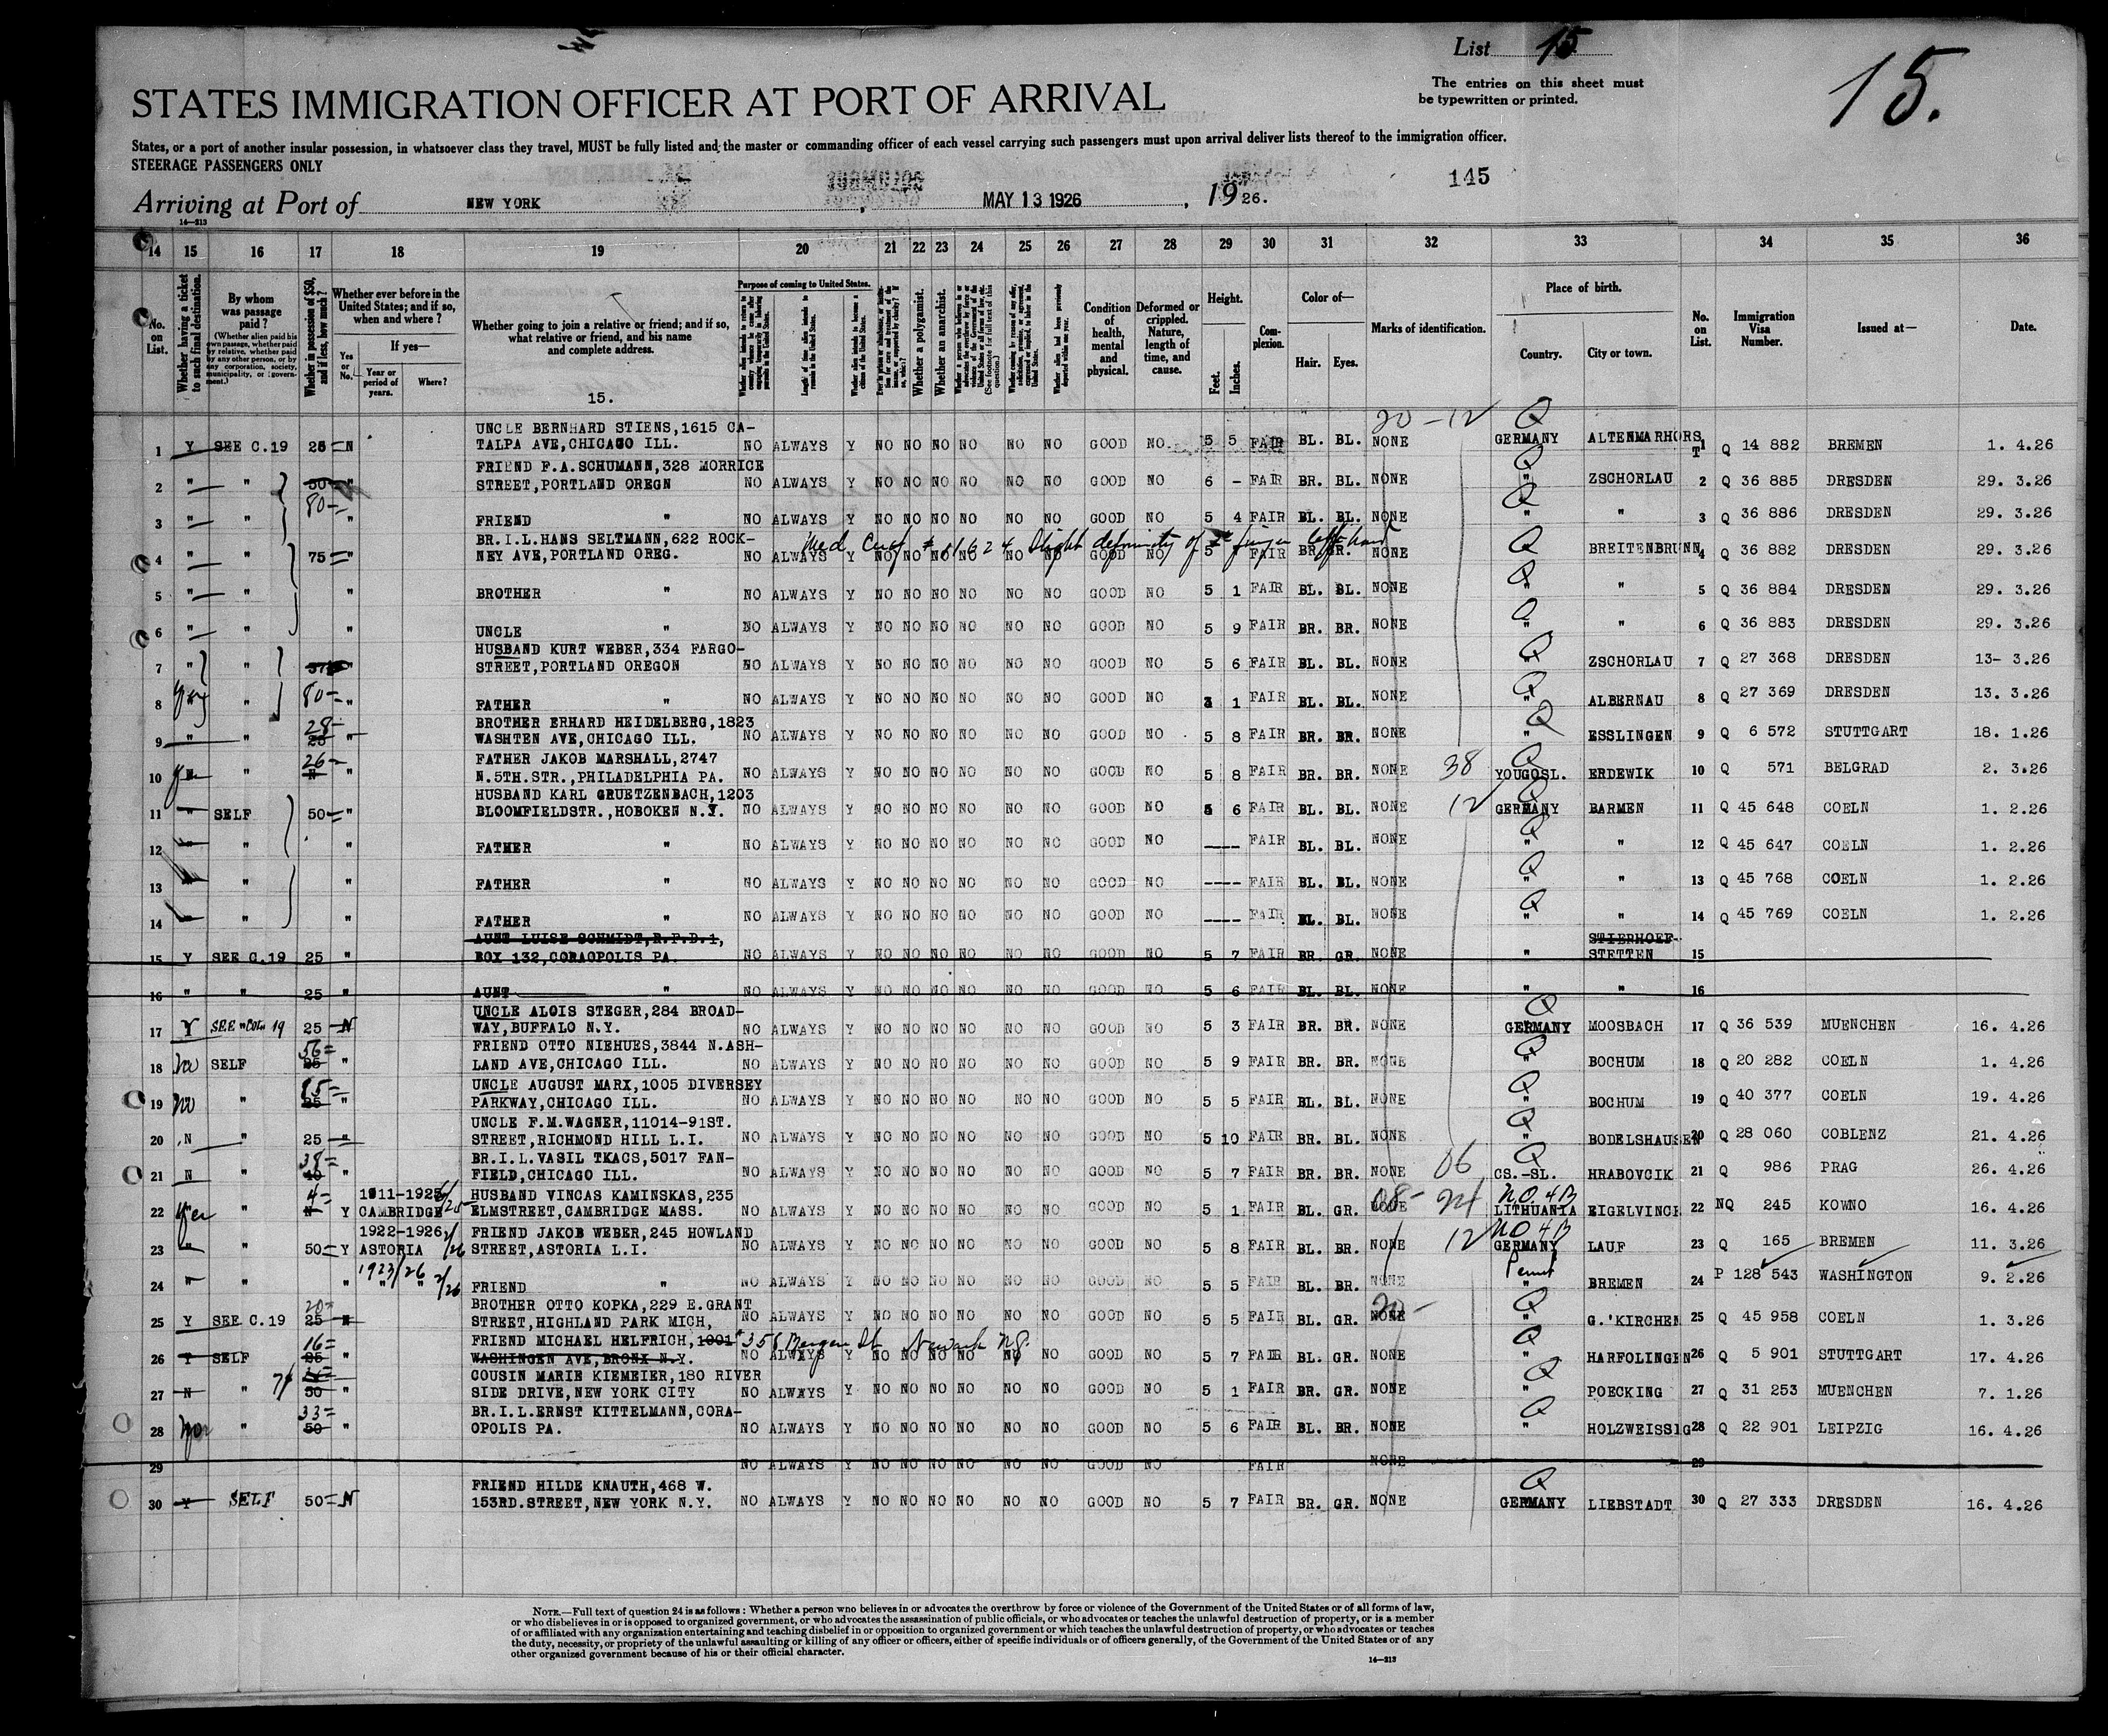 List 15
15.
The entries on this sheet must
be typewritten or printed.
STATES IMMIGRATION OFFICER AT PORT OF ARRIVAL
States, or a port of another insular possession, in whatsoever class they travel, MUST be fully listed and the master or commanding officer of each vessel carrying such passengers must upon arrival deliver lists thereof to the immigration officer.
STEERAGE PASSENGERS ONLY
145
Arriving at Port of NEW YORK, MAY 13 1926, 1926.
14—213
14 15 16 17 18 19 20 21 22 23 24 25 26 27 28 29 30 31 32 33 34 35 36
No. on List.
Whether having a ticket to such final destination.
By whom was passage paid?
(Whether alien paid his own passage, whether paid by relative, whether paid by any other person, or by any corporation, society, municipality, or government.)
Whether in possession of $50, and if less, how much?
Whether ever before in the United States; and if so, when and where?
Yes or No.
If yes—
Year or period of years.
Where?
Whether going to join a relative or friend; and if so, what relative or friend, and his name and complete address.
15.
Purpose of coming to United States.
Whether a polygamist.
Whether an anarchist.
Condition of health, mental and physical.
Deformed or crippled. Nature, length of time, and cause.
Height.
Feet. Inches.
Complexion.
Color of—
Hair. Eyes.
Marks of identification.
Place of birth.
Country. City or town.
No. on List.
Immigration Visa Number.
Issued at—
Date.
20 - 12
UNCLE BERNHARD STIENS,1615 CA-
1 Y SEE C.19 25 N TALPA AVE,CHICAGO ILL. NO ALWAYS Y NO NO NO NO NO NO GOOD NO. 5 5 FAIR BL. BL. NONE Q GERMANY ALTENMARHORST 1 Q 14 882 BREMEN 1. 4.26
FRIEND F.A.SCHUMANN,328 MORRICE
2 " " 50 80- " STREET,PORTLAND OREGN NO ALWAYS Y NO NO NO NO NO NO GOOD NO 6 - FAIR BR. BL. NONE Q " ZSCHORLAU 2 Q 36 885 DRESDEN 29. 3.26
3 " " " FRIEND " NO ALWAYS Y NO NO NO NO NO NO GOOD NO 5 4 FAIR BL. BL. NONE Q " " 3 Q 36 886 DRESDEN 29. 3.26
BR.I.L.HANS SELTMANN,622 ROCK- Med Cert # 61624 Slight deformity of finger left hand
4 " " 75 " NEY AVE,PORTLAND OREG. NO ALWAYS Y NO NO NO NO NO NO GOOD NO 5 FAIR BR. BR. NONE Q BREITENBRUNN 4 Q 36 882 DRESDEN 29. 3.26
5 " " " BROTHER " NO ALWAYS Y NO NO NO NO NO NO GOOD NO 5 1 FAIR BL. BL. NONE Q " " 5 Q 36 884 DRESDEN 29. 3.26
6 " " " UNCLE " NO ALWAYS Y NO NO NO NO NO NO GOOD NO 5 9 FAIR BR. BR. NONE Q " " 6 Q 36 883 DRESDEN 29. 3.26
HUSBAND KURT WEBER,334 FARGO-
7 " " " STREET,PORTLAND OREGON NO ALWAYS Y NO NO NO NO NO NO GOOD NO 5 6 FAIR BL. BL. NONE Q " ZSCHORLAU 7 Q 27 368 DRESDEN 13- 3.26
8 " 80- " FATHER " NO ALWAYS Y NO NO NO NO NO NO GOOD NO 3 1 FAIR BL. BL. NONE Q " ALBERNAU 8 Q 27 369 DRESDEN 13. 3.26
BROTHER ERHARD HEIDELBERG,1823
9 " " 28- 25 " WASHTEN AVE,CHICAGO ILL. NO ALWAYS Y NO NO NO NO NO NO GOOD NO 5 8 FAIR BR. BR. NONE Q " ESSLINGEN 9 Q 6 572 STUTTGART 18. 1.26
FATHER JAKOB MARSHALL,2747
10 " 26- N " N.5TH.STR.,PHILADELPHIA PA. NO ALWAYS Y NO NO NO NO NO NO GOOD NO 5 8 FAIR BR. BR. NONE 38 Q YOUGOSL. ERDEWIK 10 Q 571 BELGRAD 2. 3.26
HUSBAND KARL GRUETZENBACH,1203
11 " SELF 50 " BLOOMFIELDSTR.,HOBOKEN N.Y. NO ALWAYS Y NO NO NO NO NO NO GOOD NO 5 6 FAIR BL. BL. NONE 12 Q GERMANY BARMEN 11 Q 45 648 COELN 1. 2.26
12 " " " FATHER " NO ALWAYS Y NO NO NO NO NO NO GOOD NO ---- FAIR BL. BL. NONE Q " " 12 Q 45 647 COELN 1. 2.26
13 " " " FATHER " NO ALWAYS Y NO NO NO NO NO NO GOOD NO ---- FAIR BL. BL. NONE Q " " 13 Q 45 768 COELN 1. 2.26
14 " " " FATHER " NO ALWAYS Y NO NO NO NO NO NO GOOD NO ---- FAIR BL. BL. NONE Q " " 14 Q 45 769 COELN 1. 2.26
AUNT LUISE SCHMIDT,R.F.D.1, STIERHOEF-
15 Y SEE C.19 25 " BOX 132,CORAOPOLIS PA. NO ALWAYS Y NO NO NO NO NO NO GOOD NO 5 7 FAIR BR. GR. NONE " STETTEN 15
16 " " 25 " AUNT " NO ALWAYS Y NO NO NO NO NO NO GOOD NO 5 6 FAIR BL. BL. NONE " " 16
UNCLE ALOIS STEGER,284 BROAD-
17 Y SEE COL. 19 25 N WAY,BUFFALO N.Y. NO ALWAYS Y NO NO NO NO NO NO GOOD NO 5 3 FAIR BR. BR. NONE Q GERMANY MOOSBACH 17 Q 36 539 MUENCHEN 16. 4.26
FRIEND OTTO NIEHUES,3844 N.ASH-
18 no SELF 56= 25 " LAND AVE,CHICAGO ILL. NO ALWAYS Y NO NO NO NO NO NO GOOD NO 5 9 FAIR BR. BR. NONE Q " BOCHUM 18 Q 20 282 COELN 1. 4.26
UNCLE AUGUST MARX,1005 DIVERSEY
19 no " 25 " PARKWAY,CHICAGO ILL. NO ALWAYS Y NO NO NO NO NO NO GOOD NO 5 5 FAIR BL. BL. NONE Q " BOCHUM 19 Q 40 377 COELN 19. 4.26
UNCLE F.M.WAGNER,11014-91ST.
20 N " 25 " STREET,RICHMOND HILL L.I. NO ALWAYS Y NO NO NO NO NO NO GOOD NO 5 10 FAIR BR. BL. NONE Q " BODELSHAUSEN 20 Q 28 060 COBLENZ 21. 4.26
BR.I.L.VASIL TKACS,5017 FAN-
21 N " 38= 40 " FIELD,CHICAGO ILL. NO ALWAYS Y NO NO NO NO NO NO GOOD NO 5 7 FAIR BR. BR. NONE 06 Q CS.-SL. HRABOVCIK 21 Q 986 PRAG 26. 4.26
1911-1925 HUSBAND VINCAS KAMINSKAS,235
22 Yes " 4= N Y CAMBRIDGE ELMSTREET,CAMBRIDGE MASS. NO ALWAYS Y NO NO NO NO NO NO GOOD NO 5 1 FAIR BL. GR. NONE 08- 24 N.Q. 4B LITHUANIA EIGELVINCE 22 NQ 245 KOWNO 16. 4.26
1922-1926 2/26 FRIEND JAKOB WEBER,245 HOWLAND
23 " " 50 Y ASTORIA STREET,ASTORIA L.I. NO ALWAYS Y NO NO NO NO NO NO GOOD NO 5 8 FAIR BL. BR. NONE 12 NQ 4B GERMANY LAUF 23 Q 165 BREMEN 11. 3.26
24 " " 1923/26 " " 2/26 FRIEND " NO ALWAYS Y NO NO NO NO NO NO GOOD NO 5 5 FAIR BL. BR. NONE Permit " BREMEN 24 P 128 543 WASHINGTON 9. 2.26
BROTHER OTTO KOPKA,229 E.GRANT
25 Y SEE C.19 20= 25 N STREET,HIGHLAND PARK MICH, NO ALWAYS Y NO NO NO NO NO NO GOOD NO 5 5 FAIR BL. GR. NONE 20- Q " G.'KIRCHEN 25 Q 45 958 COELN 1. 3.26
FRIEND MICHAEL HELFRICH,1001 356 Bergen St Newark N.J.
26 Y SELF 16= 25 " WASHINGEN AVE,BRONX N.Y. NO ALWAYS Y NO NO NO NO NO NO GOOD NO 5 7 FAIR BL. GR. NONE Q " HARFOLINGEN 26 Q 5 901 STUTTGART 17. 4.26
COUSIN MARIE KIEMEIER,180 RIVER
27 N " 50 " SIDE DRIVE,NEW YORK CITY NO ALWAYS Y NO NO NO NO NO NO GOOD NO 5 1 FAIR BR. GR. NONE Q " POECKING 27 Q 31 253 MUENCHEN 7. 1.26
BR.I.L.ERNST KITTELMANN,CORA-
28 " 33= 50 " OPOLIS PA. NO ALWAYS Y NO NO NO NO NO NO GOOD NO 5 6 FAIR BL. BR. NONE Q " HOLZWEISSIG 28 Q 22 901 LEIPZIG 16. 4.26
29 NO ALWAYS Y NO NO NO NO NO NO GOOD NO FAIR NONE 29
FRIEND HILDE KNAUTH,468 W.
30 Y SELF 50 N 153RD.STREET,NEW YORK N.Y. NO ALWAYS Y NO NO NO NO NO NO GOOD NO 5 7 FAIR BR. GR. NONE Q GERMANY LIEBSTADT 30 Q 27 333 DRESDEN 16. 4.26
NOTE.—Full text of question 24 is as follows: Whether a person who believes in or advocates the overthrow by force or violence of the Government of the United States or of all forms of law,
or who disbelieves in or is opposed to organized government, or who advocates the assassination of public officials, or who advocates or teaches the unlawful destruction of property, or is a member
of or affiliated with any organization entertaining and teaching disbelief in or opposition to organized government or which teaches the unlawful destruction of property, or who advocates or teaches
the duty, necessity, or propriety of the unlawful assaulting or killing of any officer or officers, either of specific individuals or of officers generally, of the Government of the United States or of any
other organized government because of his or their official character.
14—213